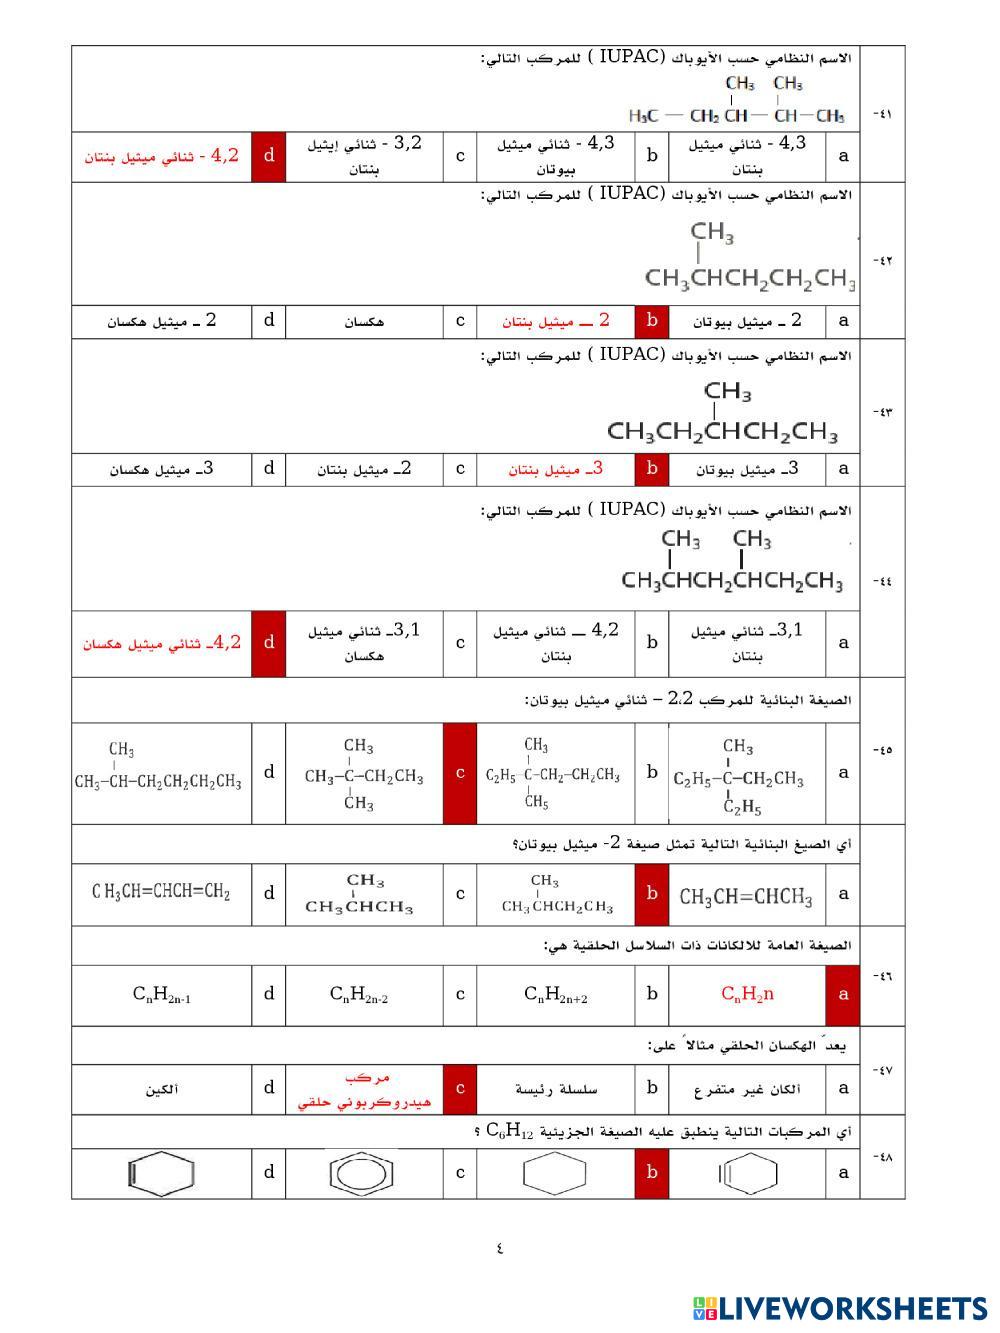 الاسم النظامي حسب الأيوباك (IUPAC ) للمركب التالي:
CH3 CH3
H3C — CH2 CH — CH — CH3
٤١-
a
4,3 - ثنائي ميثيل
بنتان
b
4,3 - ثنائي ميثيل
بيوتان
c
3,2 - ثنائي إيثيل
بنتان
d
4,2 - ثنائي ميثيل بنتان
الاسم النظامي حسب الأيوباك (IUPAC ) للمركب التالي:
CH3
CH3CHCH2CH2CH3
٤٢-
a
2 ـ ميثيل بيوتان
b
2 ـــ ميثيل بنتان
c
هكسان
d
2 ـ ميثيل هكسان
الاسم النظامي حسب الأيوباك (IUPAC ) للمركب التالي:
CH3
CH3CH2CHCH2CH3
٤٣-
a
3ـ ميثيل بيوتان
b
3ـ ميثيل بنتان
c
2ـ ميثيل بنتان
d
3ـ ميثيل هكسان
الاسم النظامي حسب الأيوباك (IUPAC ) للمركب التالي:
CH3 CH3
CH3CHCH2CHCH2CH3
٤٤-
a
3,1ـ ثنائي ميثيل
بنتان
b
4,2 ـــ ثنائي ميثيل
بنتان
c
3,1ـ ثنائي ميثيل
هكسان
d
4,2ـ ثنائي ميثيل هكسان
الصيغة البنائية للمركب 2،2 – ثنائي ميثيل بيوتان:
٤٥-
a
CH3
C2H5–C–CH2CH3
C2H5
b
CH3
C2H5–C–CH2–CH2CH3
CH5
c
CH3
CH3–C–CH2CH3
CH3
d
CH3
CH3–CH–CH2CH2CH2CH3
أي الصيغ البنائية التالية تمثل صيغة 2- ميثيل بيوتان؟
a
CH3CH=CHCH3
b
CH3
CH3CHCH2CH3
c
CH3
CH3CHCH3
d
CH3CH=CHCH=CH2
الصيغة العامة للالكانات ذات السلاسل الحلقية هي:
٤٦-
a
CnH2n
b
CnH2n+2
c
CnH2n-2
d
CnH2n-1
يعدّ الهكسان الحلقي مثالاً على:
٤٧-
a
ألكان غير متفرع
b
سلسلة رئيسة
c
مركب
هيدروكربوني حلقي
d
ألكين
أي المركبات التالية ينطبق عليه الصيغة الجزيئية C6H12 ؟
٤٨-
a
b
c
d
٤
LIVE LIVEWORKSHEETS